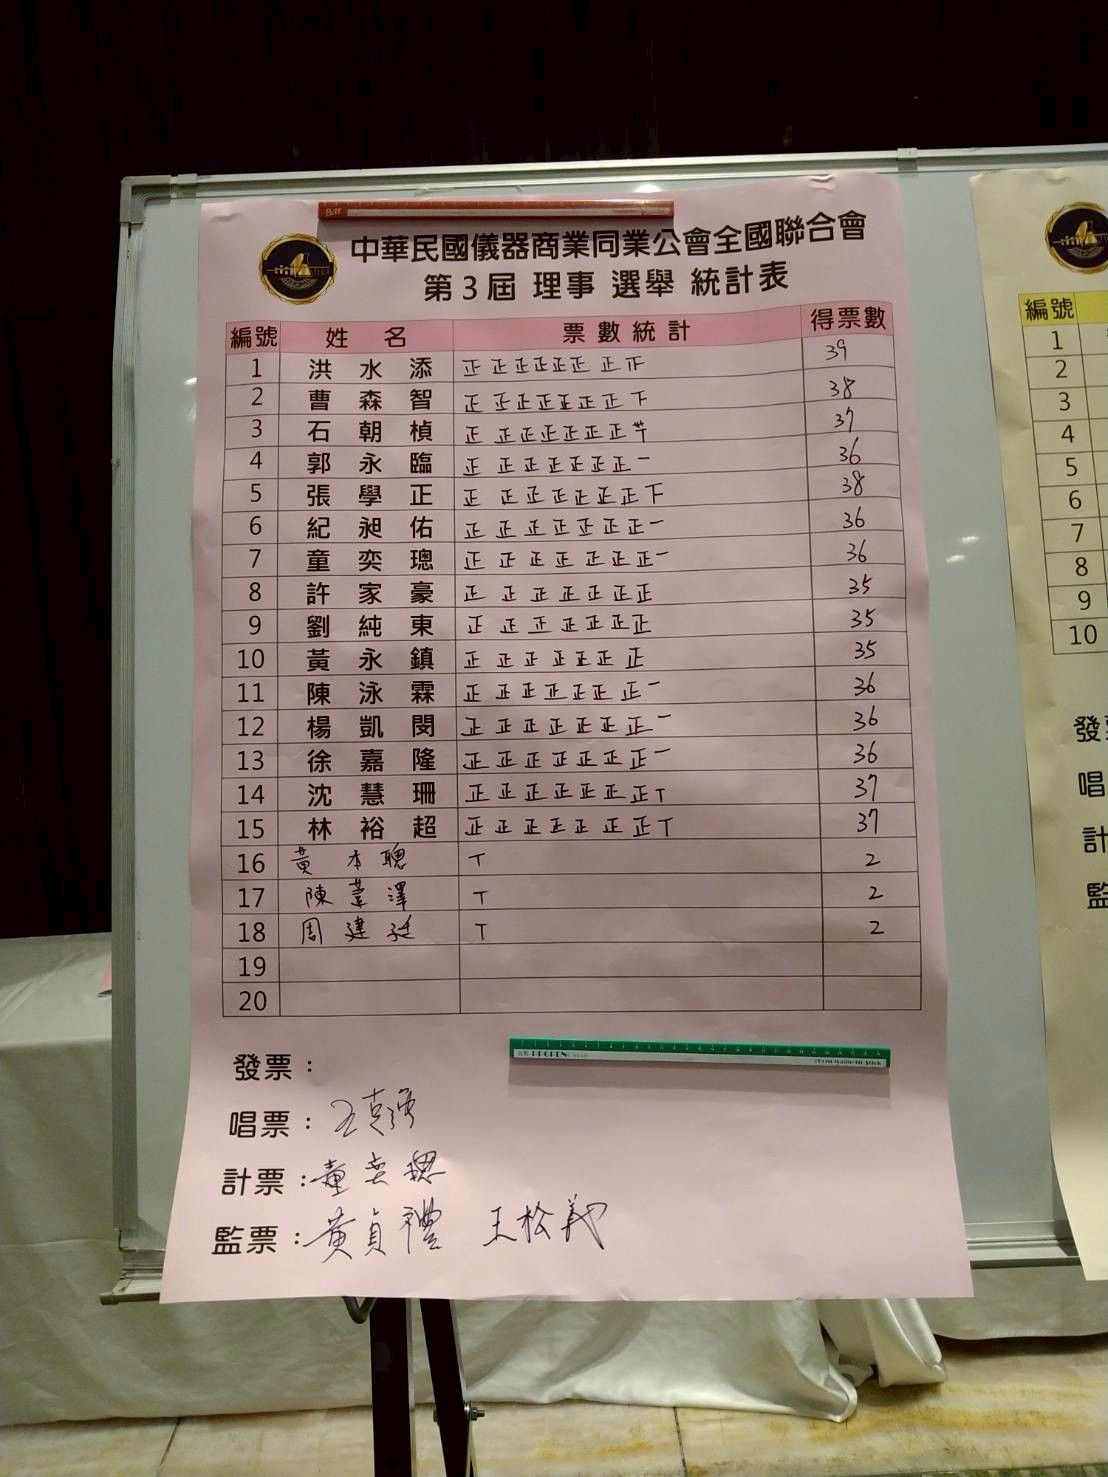 中華民國儀器商業同業公會全國聯合會
第3屆 理事 選舉 統計表
編號 姓名 票數統計 得票數
1 洪水添 正正正正正正正 39
2 曹森智 正正正正正正正下 38
3 石朝楨 正正正正正正正 37
4 郭永臨 正正正正正正正一 36
5 張學正 正正正正正正正下 38
6 紀昶佑 正正正正正正正一 36
7 童奕璁 正正正正正正正一 36
8 許家豪 正正正正正正正 35
9 劉純東 正正正正正正正 35
10 黃永鎮 正正正正正正正 35
11 陳泳霖 正正正正正正正一 36
12 楊凱閔 正正正正正正正一 36
13 徐嘉隆 正正正正正正正一 36
14 沈慧珊 正正正正正正正T 37
15 林裕超 正正正正正正正T 37
16 黃本聰 T 2
17 陳葦澤 T 2
18 周建廷 T 2
19
20
發票：
唱票：王克強
計票：童奕璁
監票：黃貞禮 王松義
編號
1
2
3
4
5
6
7
8
9
10
發
唱
計
監